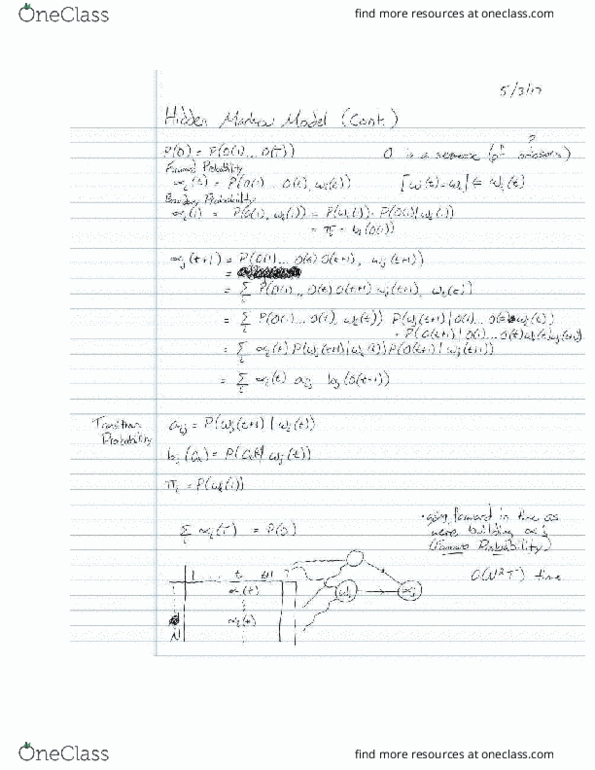 OneClass
find more resources at oneclass.com
5/3/17
Hidden Markov Model (Cont.)
P(O) = P(O(1)... O(T))
O is a sequence (of emissions)
Forward Probability
αi(t) = P(O(1) ... O(t), ωi(t))
[ω(t)=ωi] ⇐ ωi(t)
Boundary Probability
αi(1) = P(O(1), ωi(1)) = P(ωi(1)) · P(O(1)|ωi(1))
= πi · bi(O(1))
αj(t+1) = P(O(1)... O(t) O(t+1), ωj(t+1))
=
= Σi P(O(1)... O(t) O(t+1) ωj(t+1), ωi(t))
= Σi P(O(1)... O(t), ωi(t)) P(ωj(t+1) | O(1)... O(t) ωi(t))
· P(O(t+1) | O(1)... O(t) ωi(t) ωj(t+1))
= Σi αi(t) P(ωj(t+1)|ωi(t)) P(O(t+1) | ωj(t+1))
= Σi αi(t) aij bj(O(t+1))
Transition Probability
aij = P(ωj(t+1) | ωi(t))
bj(Ok) = P(Ok | ωj(t))
πi = P(ωi(1))
Σi αi(T) = P(O)
· going forward in time as
we're building αj
(Forward Probability)
O(N²T) time
1 ... t t+1
αi(t)
αi(t)
N
ωj
αj
OneClass
find more resources at oneclass.com